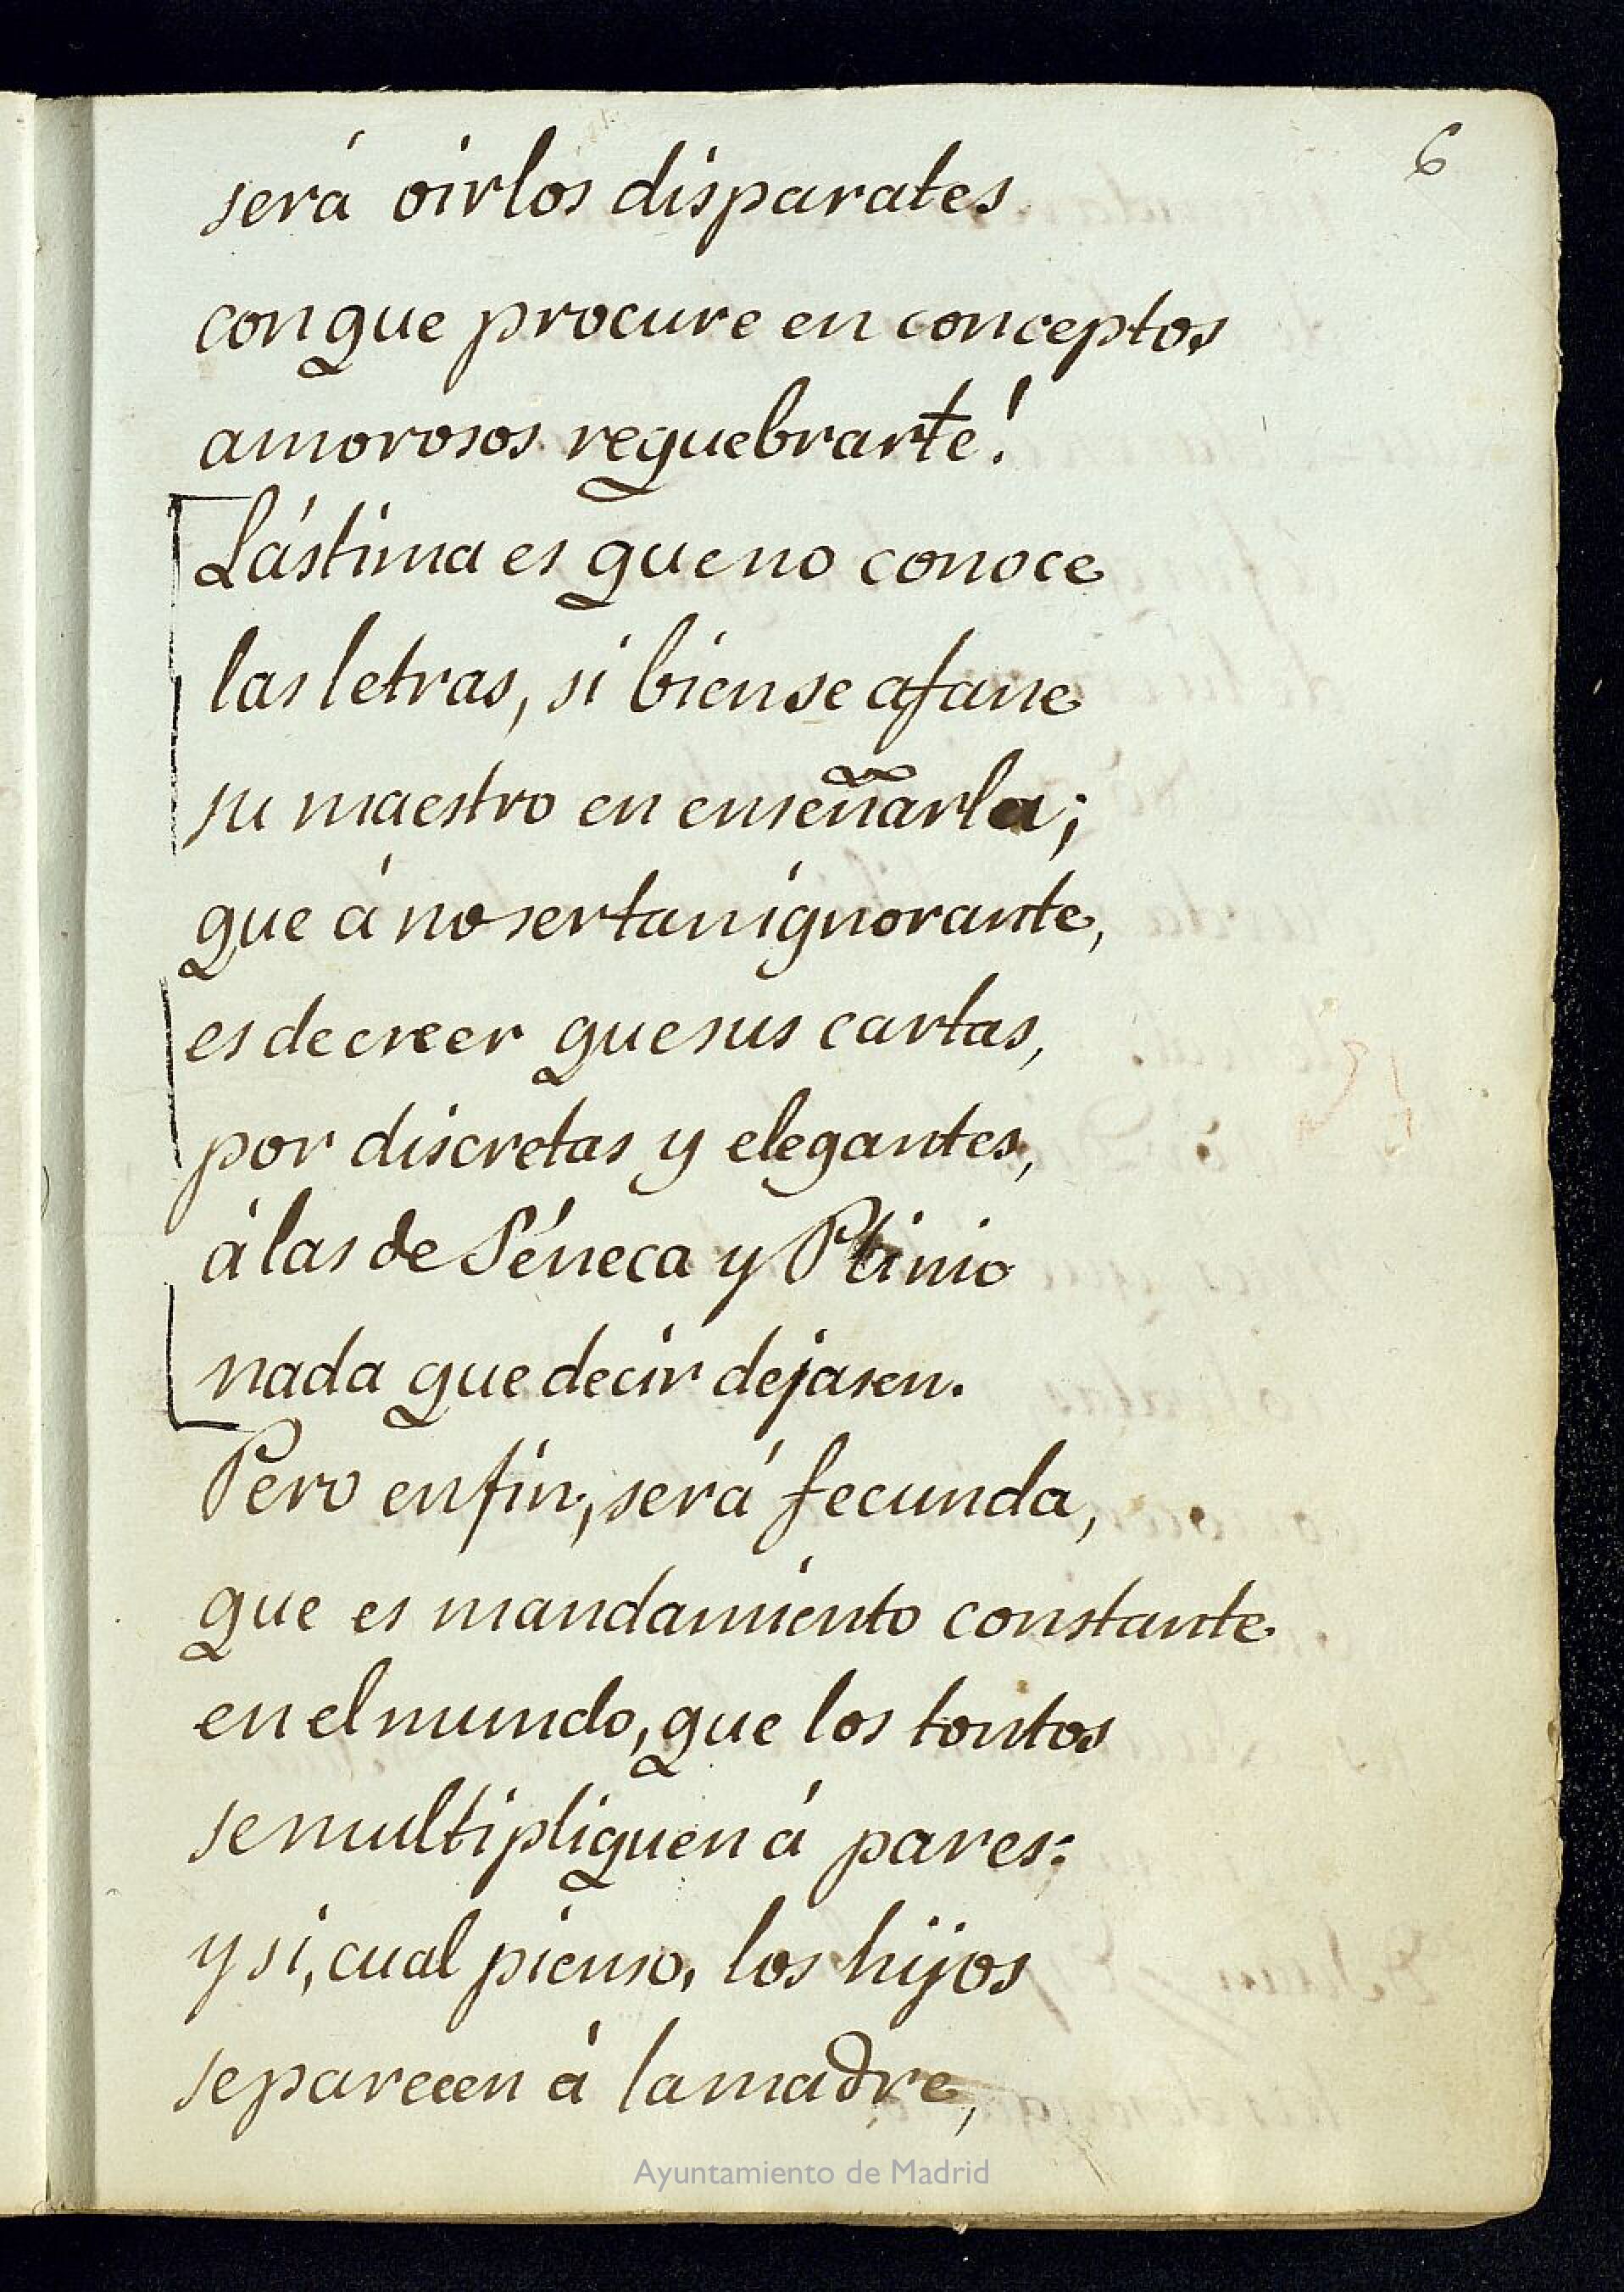 6
será oirlos disparates
con que procure en conceptos
amorosos requebrarte!
Lástima es que no conoce
las letras, si bien se afane
su maestro en enseñarla;
que á no ser tan ignorante,
es de creer que sus cartas,
por discretas y elegantes,
á las de Séneca y Plinio
nada que decir dejasen.
Pero en fin, será fecunda,
que es mandamiento constante
en el mundo, que los tontos
se multipliquen á pares:
y si, cual pienso, los hijos
se parecen á la madre,
Ayuntamiento de Madrid